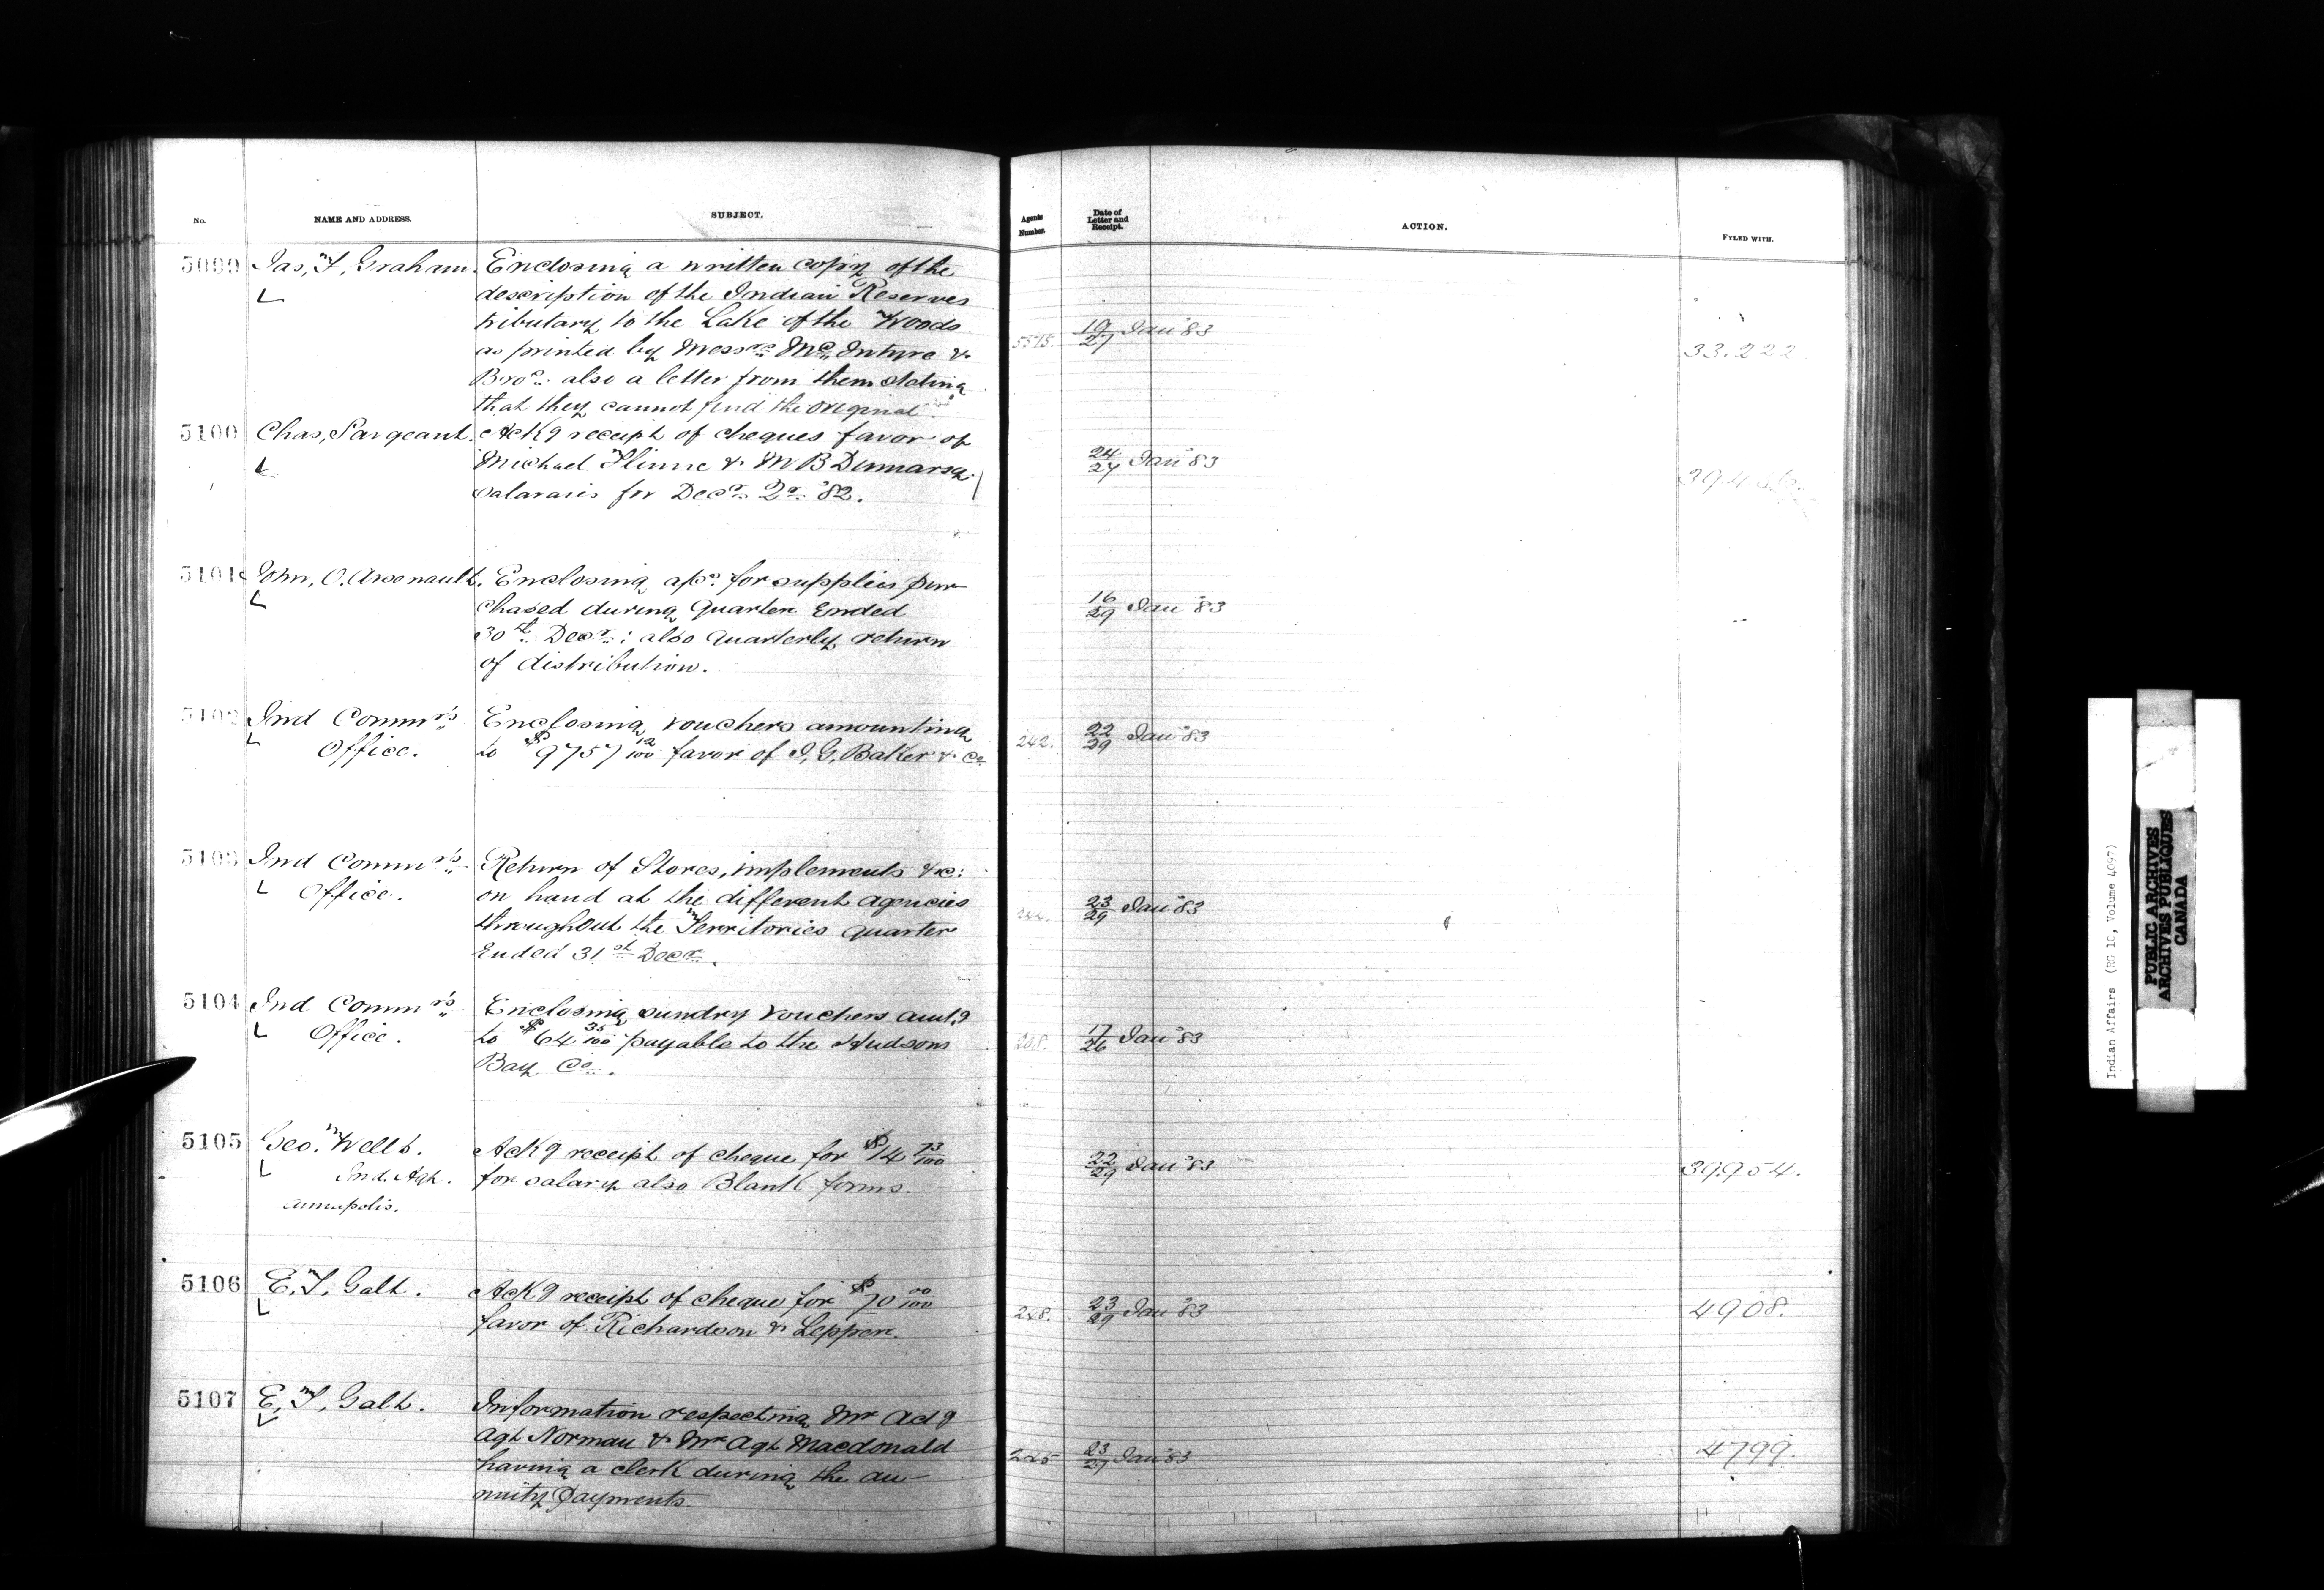 No.
NAME AND ADDRESS.
SUBJECT.
Agents Number.
Date of Letter and Receipt.
ACTION.
FYLED WITH.
5099 Jas, F, Graham. Enclosing a written copy of the
description of the Indian Reserves
tributary to the Lake of the Woods
as printed by Messrs. McIntyre &
Bros. also a letter from them stating
that they cannot find the original.
5515. 19/27 Jan '83 33.222
5100 Chas, Sargeant. Ackg receipt of cheques favor of
Michael Flinne & M B
salararies for Decr. Qr. '82.
24/27 Jan '83
5101 John, O. Arsenault. Enclosing a/cs. for supplies pur-
chased during Quarter Ended
30th. Decr.: also Quarterly return
of distribution.
16/29 Jan '83
5102 Ind Commrs Enclosing vouchers amounting
Office. to $9757 12/100 favor of I, G, Baker & Co
242. 22/29 Jan '83
5103 Ind Commrs Return of Stores, implements &c:
Office. on hand at the different agencies
throughout the Territories quarter
Ended 31st Decr.
23/29 Jan '83
5104 Ind Commrs Enclosing sundry vouchers amtg
Office. to $64 35/100 payable to the Hudsons
Bay Co.
208. 17/26 Jan '83
5105 Geo. Wells. Ackg receipt of cheque for $14 73/100
Ind. Agt. for salary also Blank forms.
Annapolis.
22/29 Jan '83 39.954.
5106 E. T. Galt. Ackg receipt of cheque for $70 00/100
favor of Richardson & Lepper.
248. 23/29 Jan '83 4908.
5107 E, T, Galt. Information respecting Mr Actg
Agt Norman & Mr Agt Macdonald
having a clerk during the an-
nuity Payments.
245 23/29 Jan '83 4799.
Indian Affairs (RG 10, Volume 4097)
PUBLIC ARCHIVES
ARCHIVES PUBLIQUES
CANADA